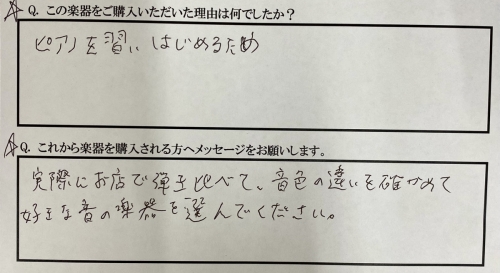 ☆Q. この楽器をご購入いただいた理由は何でしたか？
ピアノを習いはじめるため
☆Q. これから楽器を購入される方へメッセージをお願いします。
実際にお店で弾き比べて、音色の違いを確かめて
好きな音の楽器を選んでください。